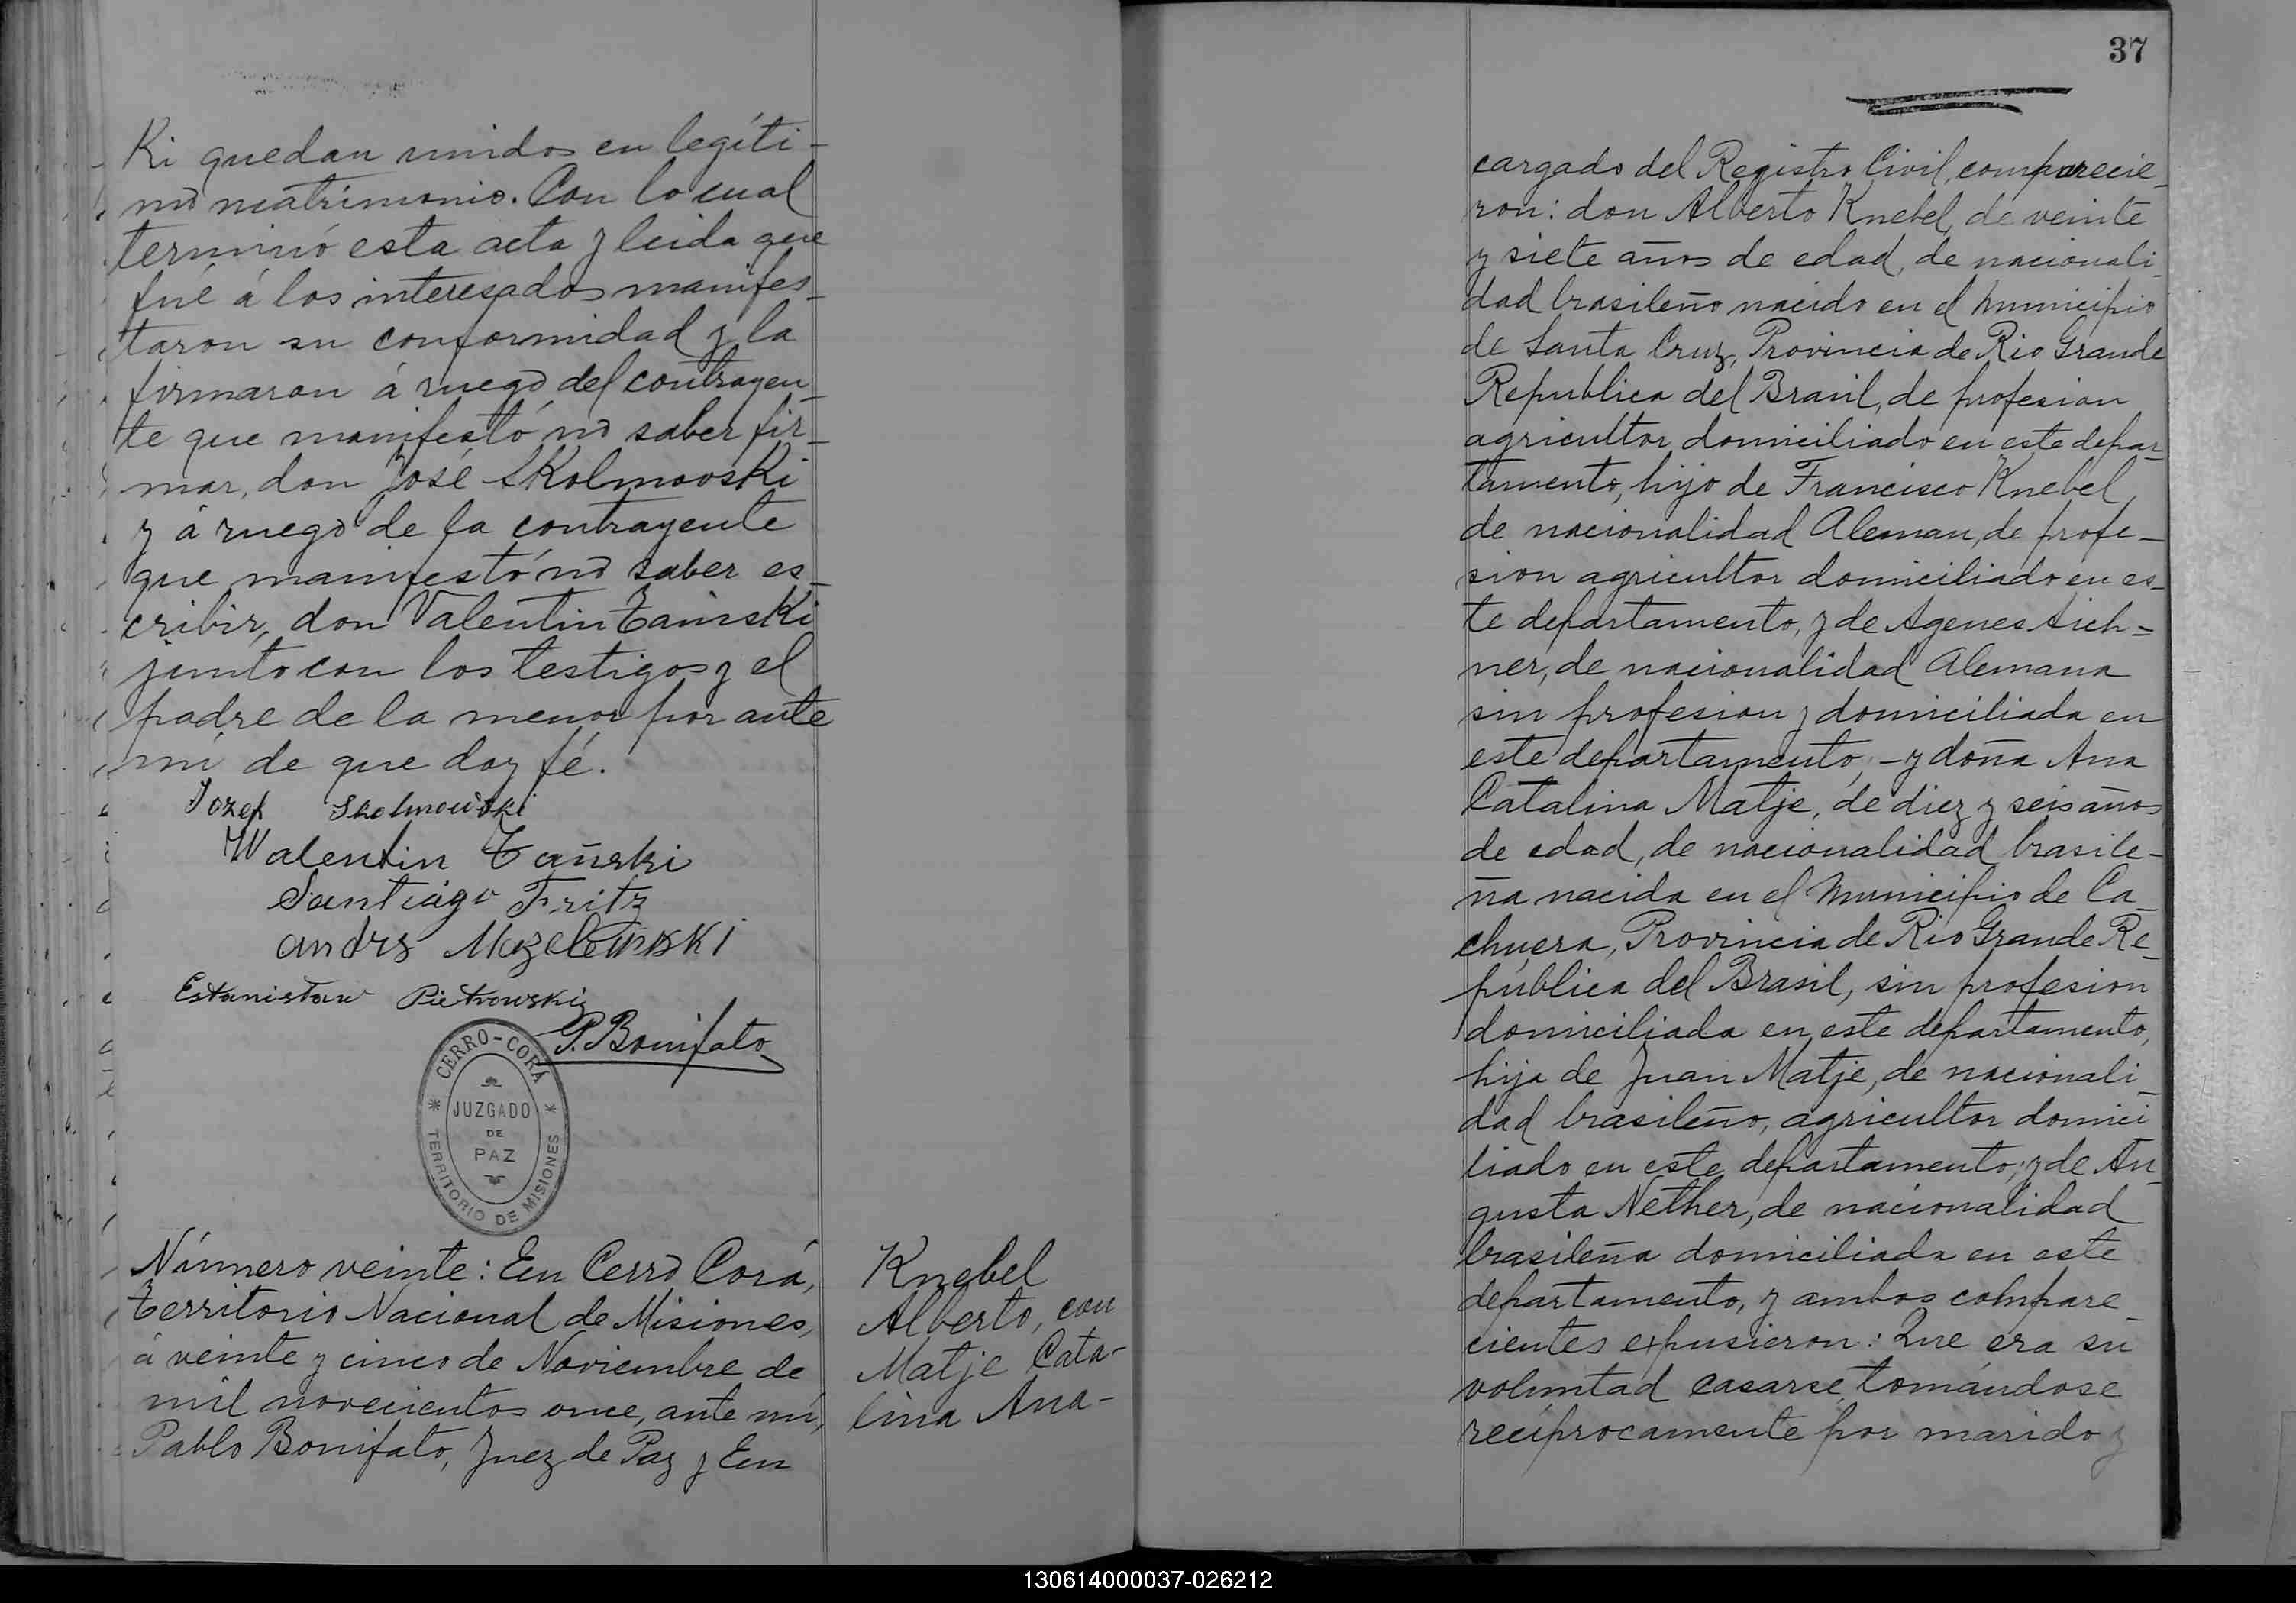 Ki quedan unidos en legíti-
mo matrimonio. Con lo cual
terminó esta acta y leida que
fué á los interesados manifes-
taron su conformidad y la
firmaron á ruego del contrayen-
te que manifestó no saber fir-
mar, don José Skolmovski
y á ruego de la contrayente
que manifestó no saber es-
cribir, don Valentin Tainski
junto con los testigos y el
padre de la menor por ante
mi de que doy fé.
Jozef Skolmowski
Walentin Tañski
Santiago Fritz
Estanistaw Pietrowski
P. Bonifato
CERRO-CORÁ
* JUZGADO *
DE
PAZ
TERRITORIO DE MISIONES
Número veinte: En Cerro Corá,
Territorio Nacional de Misiones,
á veinte y cinco de Noviembre de
mil novecientos once, ante mí,
Pablo Bonifato, Juez de Paz y En
Knebel
Alberto, con
Matje Cata-
lina Ana-
37
cargado del Registro Civil, comparecie-
ron: don Alberto Knebel, de veinte
y siete años de edad, de nacionali-
dad brasileño nacido en el Municipio
de Santa Cruz, Provincia de Rio Grande
Republica del Brasil, de profesion
agricultor domiciliado en este depar-
tamento, hijo de Francisco Knebel,
de nacionalidad Aleman, de profe-
sion agricultor domiciliado en es-
te departamento, y de Agenes Aich=
ner, de nacionalidad Alemana
sin profesion y domiciliada en
este departamento, - y doña Ana
Catalina Matje, de diez y seis años
de edad, de nacionalidad brasile-
ña nacida en el Municipio de Ca-
chuera, Provincia de Rio Grande Re-
pública del Brasil, sin profesion
domiciliada en este departamento,
hija de Juan Matje, de nacionali-
dad brasileño, agricultor domici
liado en este departamento, y de Au-
gusta Nether, de nacionalidad
brasileña domiciliada en este
departamento, y ambos compare-
cientes expusieron: Que era su
voluntad casarse, tomándose
recíprocamente por marido y
130614000037-026212